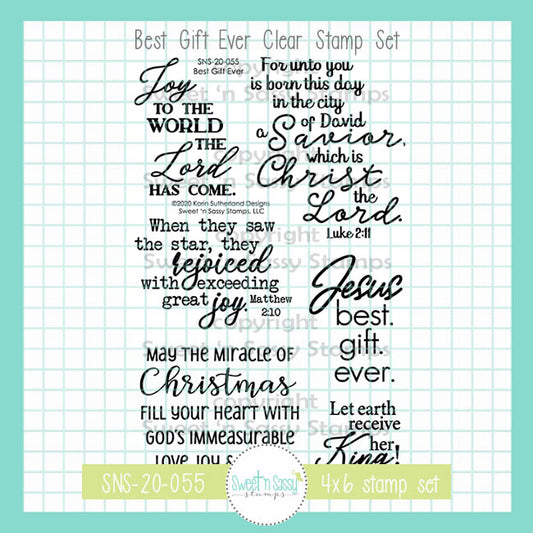 Best Gift Ever Clear Stamp Set
SNS-20-055
Best Gift Ever
Joy
TO THE
WORLD
THE
Lord
HAS COME.
©2020 Korin Sutherland Designs
Sweet 'n Sassy Stamps, LLC
For unto you
is born this day
in the city
of David
a Savior,
which is
Christ
the
Lord.
Luke 2:11
When they saw
the star, they
rejoiced
with exceeding
great joy. Matthew
2:10
Jesus
best.
gift.
ever.
MAY THE MIRACLE OF
Christmas
FILL YOUR HEART WITH
GOD'S IMMEASURABLE
LOVE, JOY &
Let earth
receive
her
King!
copyright
Sweet 'n Sassy Stamps
copyright
Sweet 'n Sassy Stamps
copyright
Sweet 'n Sassy Stamps
copyright
Sweet 'n Sassy Stamps
copyright
SNS-20-055
Sweet 'n Sassy
stamps
4x6 stamp set